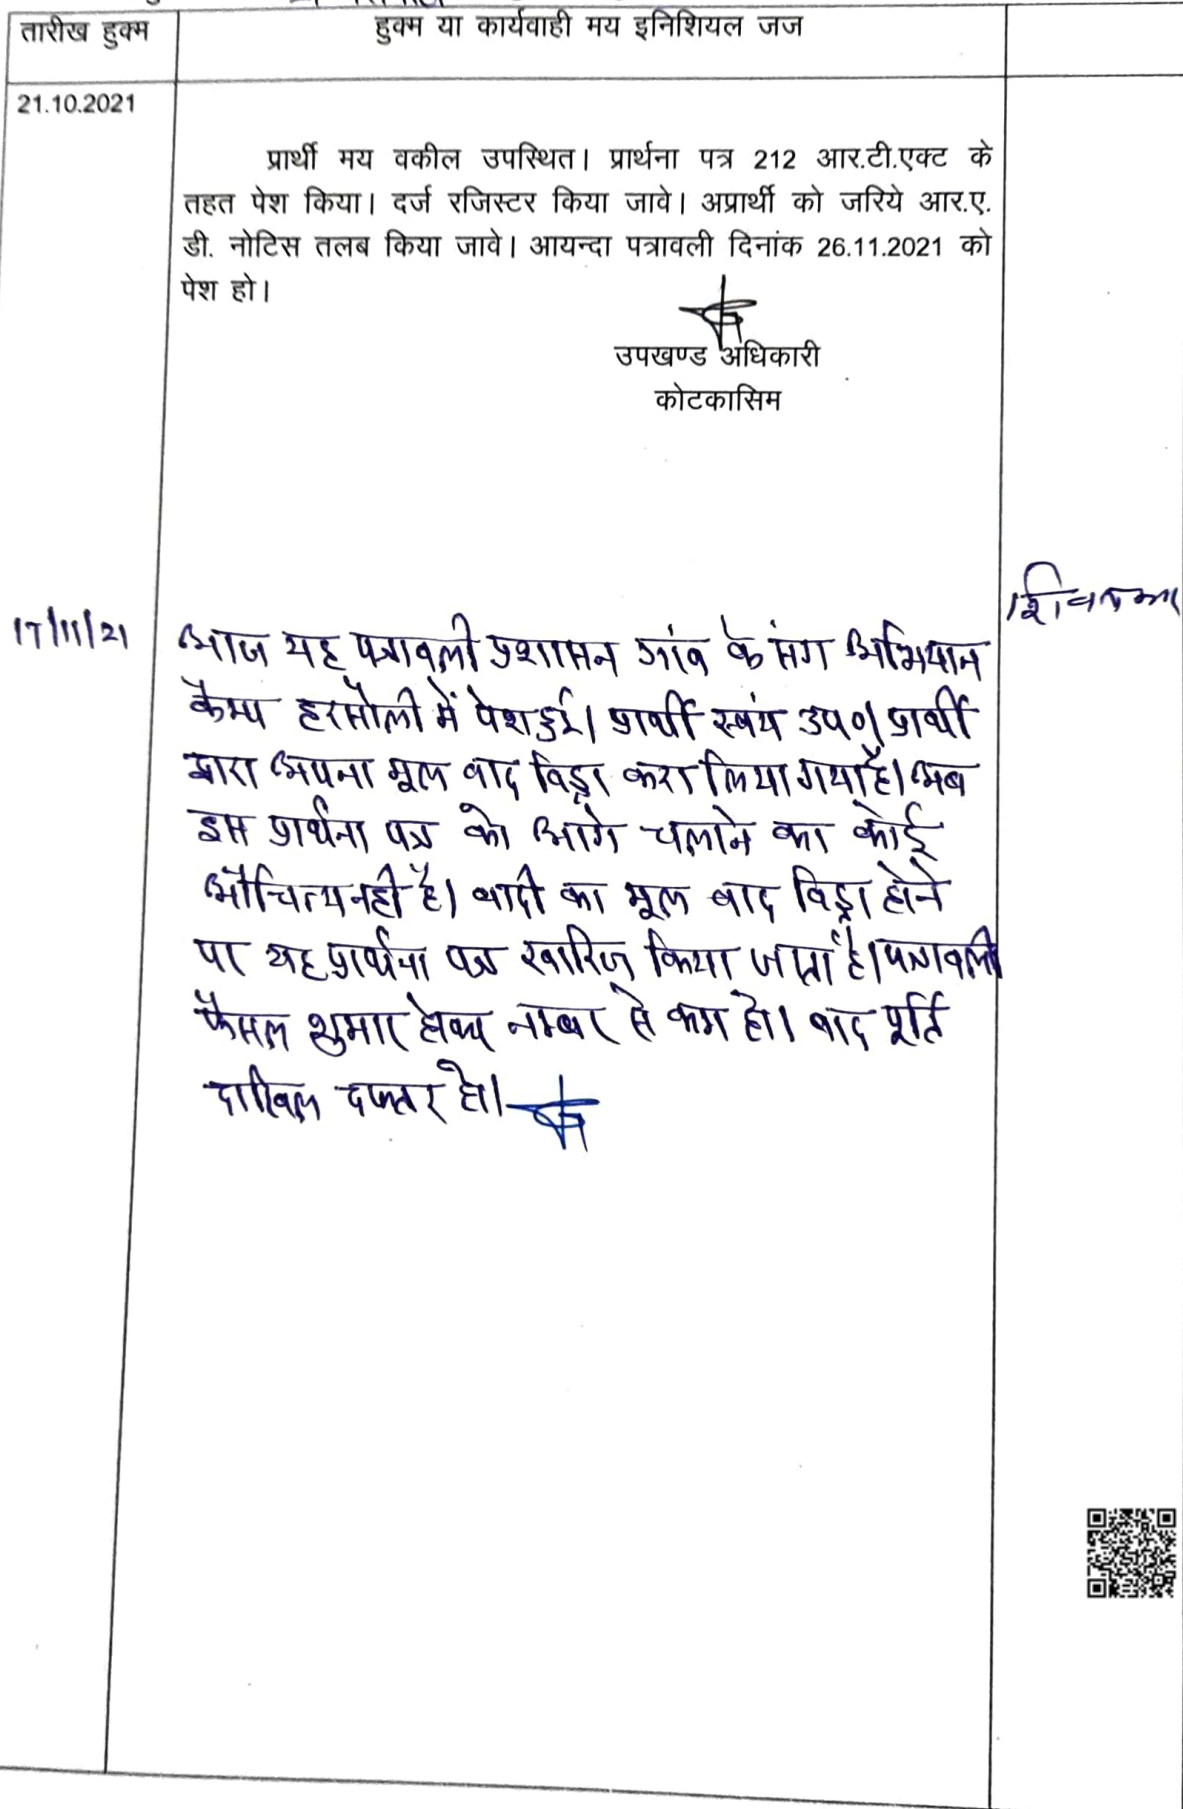 तारीख हुक्म
हुक्म या कार्यवाही मय इनिशियल जज
21.10.2021
प्रार्थी मय वकील उपस्थित। प्रार्थना पत्र 212 आर.टी.एक्ट के
तहत पेश किया। दर्ज रजिस्टर किया जावे। अप्रार्थी को जरिये आर.ए.
डी. नोटिस तलब किया जावे। आयन्दा पत्रावली दिनांक 26.11.2021 को
पेश हो।
उपखण्ड अधिकारी
कोटकासिम
17/11/21
आज यह पत्रावली प्रशासन गांव के संग अभियान
कैम्प हरसौली में पेश हुई। प्रार्थी स्वंय उप०। प्रार्थी
द्वारा अपना मूल वाद विड्रा करा लिया गया है। अब
इस प्रार्थना पत्र को आगे चलाने का कोई
औचित्य नही है। वादी का मूल वाद विड्रा होने
पर यह प्रार्थना पत्र खारिज किया जाता है। पत्रावली
फैसल शुमार होकर नम्बर से कम हो। बाद पूर्ति
दाखिल दफ्तर हो।